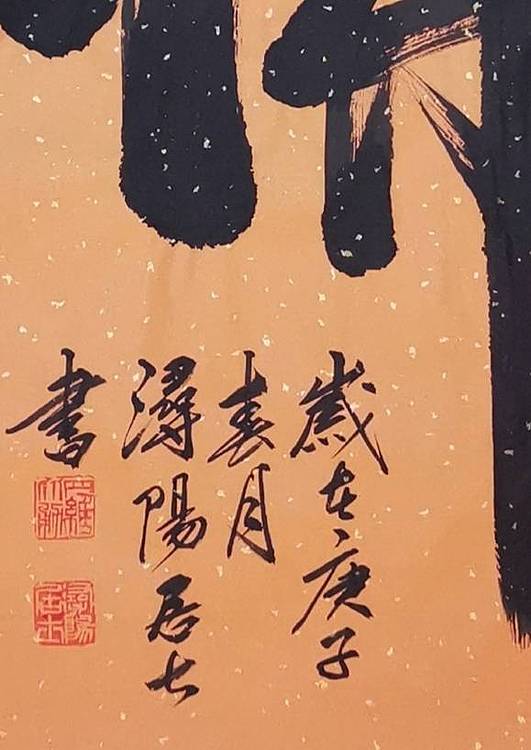 歲在庚子
春月
潯陽居士
書
潯陽居士